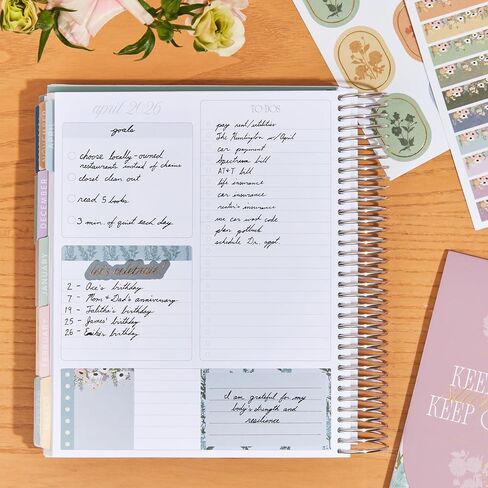 april 2026
goals
choose locally-owned
restaurants instead of chains
closet clean out
read 5 books
3 min. of quiet each day
let's celebrate
2 - Ace's birthday
7 - Mom & Dad's anniversary
19 - Talitha's birthday
25 - James' birthday
26 - birthday
TO DOS
pay rent/utilities
The Huntington w/ April
car payment
Spectrum bill
AT&T bill
life insurance
car insurance
renter's insurance
use car wash code
plan potluck
schedule Dr. appt.
I am grateful for my
body's strength and
resilience
DECEMBER
JANUARY
KEEP
KEEP